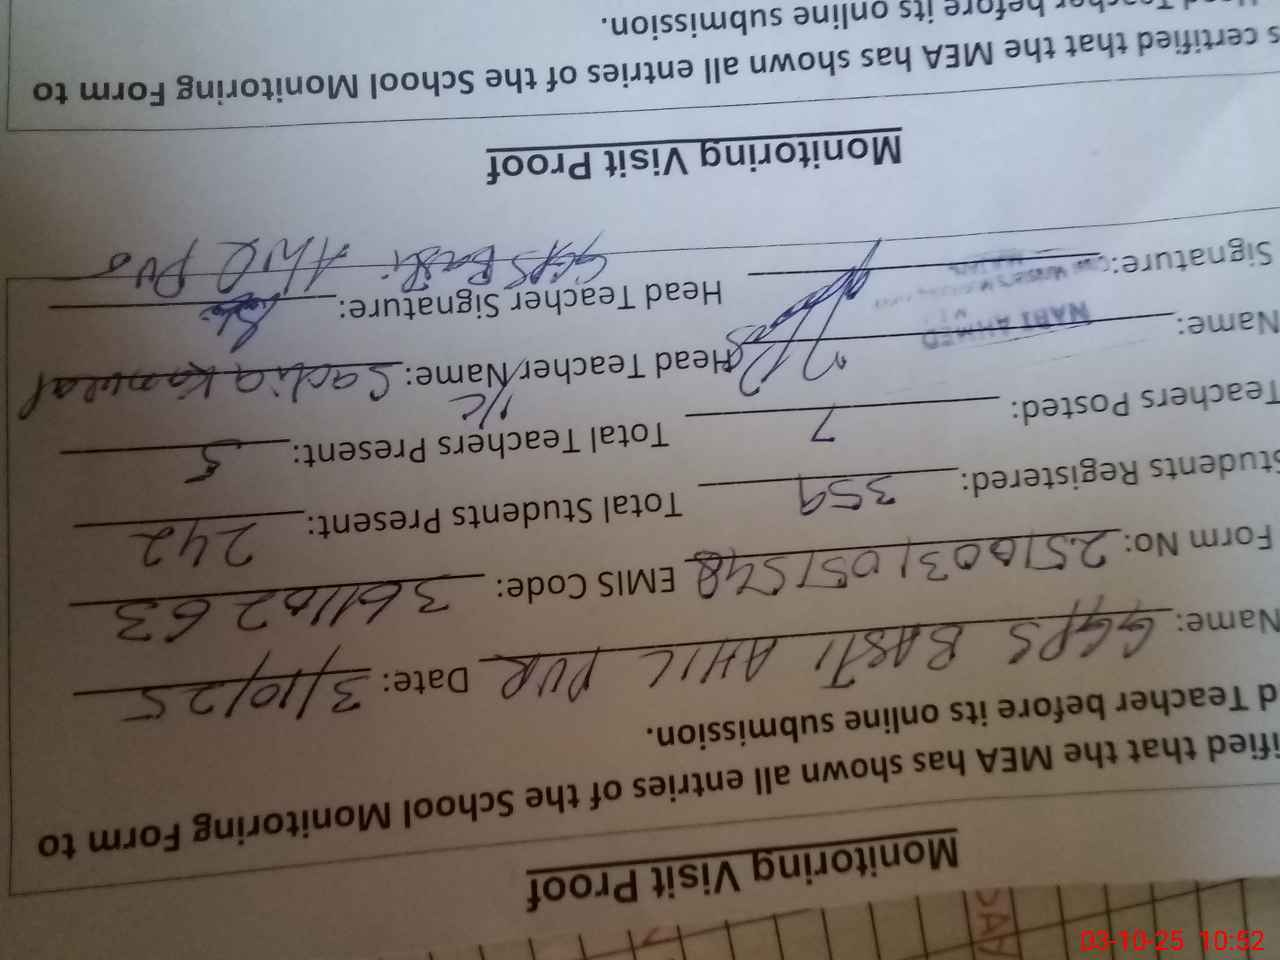 Monitoring Visit Proof
ified that the MEA has shown all entries of the School Monitoring Form to
d Teacher before its online submission.
Name: GGPS BASTI AHIL PUR Date: 3/10/25
Form No: 251003105 1548 EMIS Code: 36110263
Students Registered: 359 Total Students Present: 242
Teachers Posted: 7 Total Teachers Present: 5
Name: Head Teacher Name: I/C Sadia
NABI AHMED
Signature: Head Teacher Signature:
GGPS Basti
Monitoring Visit Proof
s certified that the MEA has shown all entries of the School Monitoring Form to
Teacher before its online submission.
03-10-25 10:52